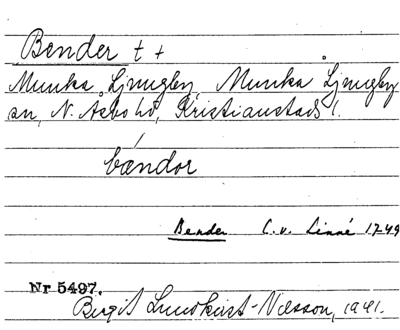 Bender t +
Munka Ljungby, Munka Ljungby
sn, N. Åsbo hd, Kristianstads l.
bændor
Bender C. v. Linné 1749
Nr 5497.
Birgit Lundkvist-Nilsson, 1941.